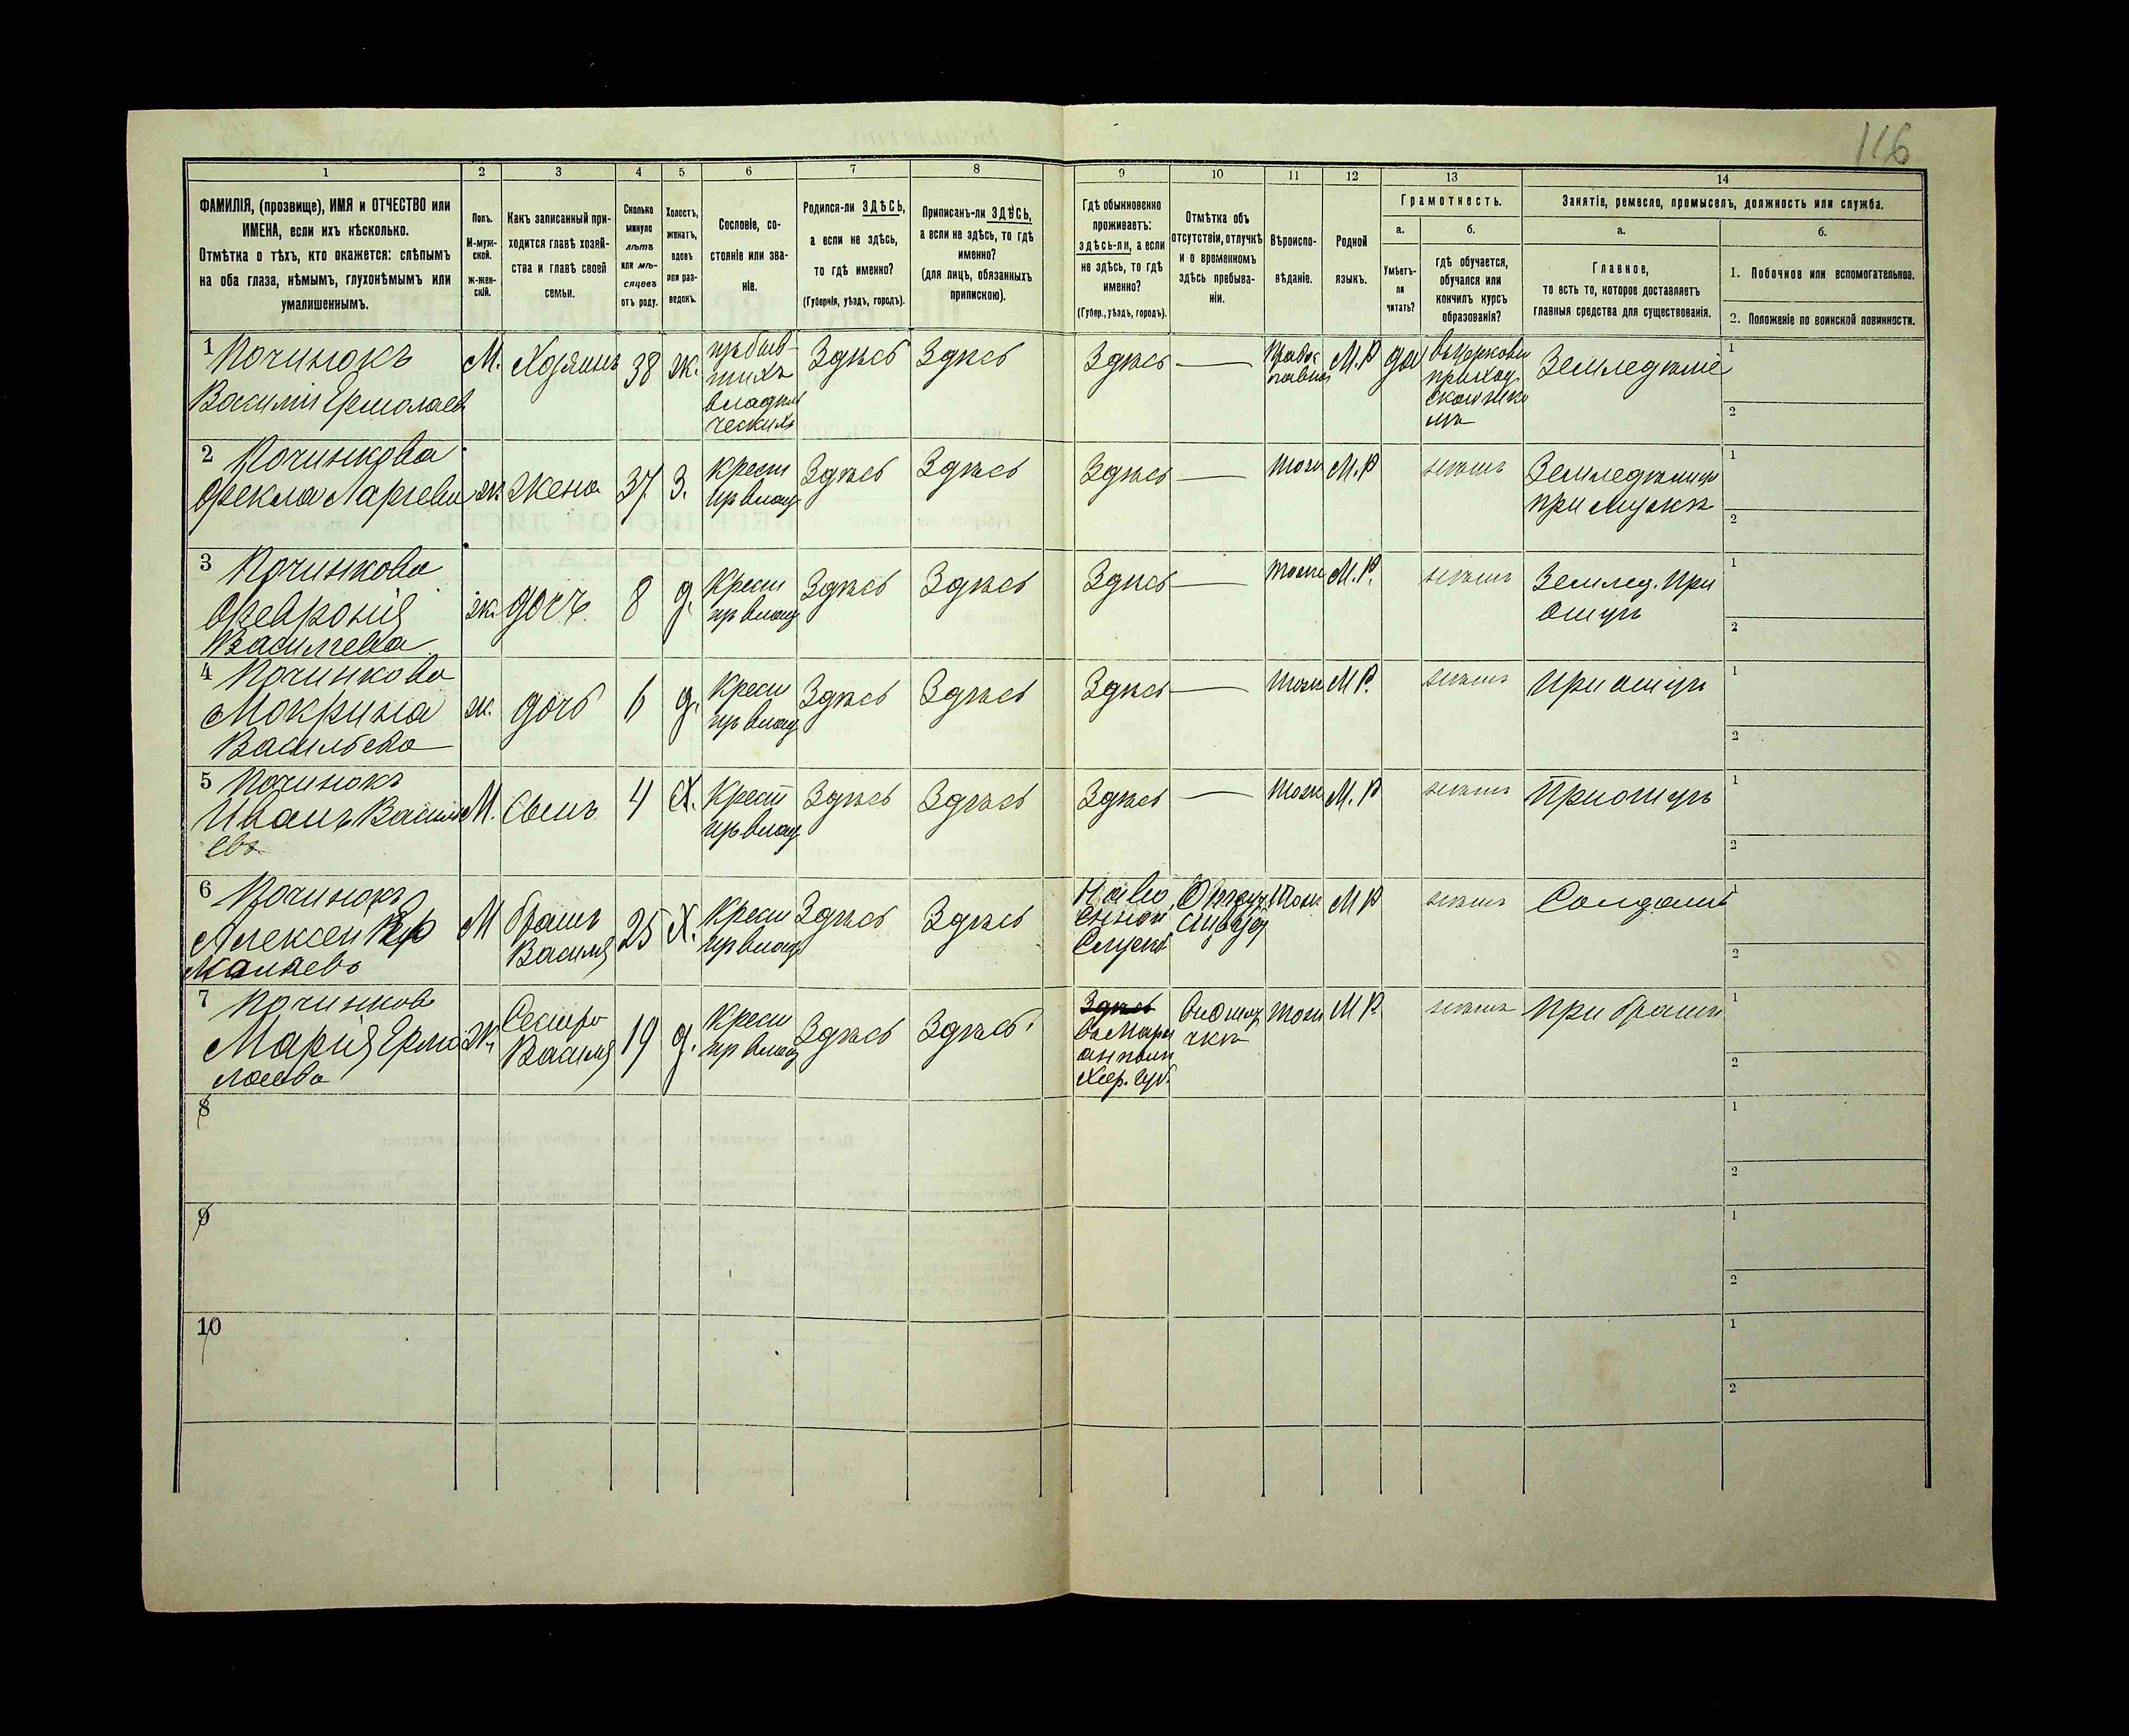 116
1 2 3 4 5 6 7 8 9 10 11 12 13 14
ФАМИЛІЯ, (прозвище), ИМЯ и ОТЧЕСТВО или
ИМЕНА, если ихъ нѣсколько.
Отмѣтка о тѣхъ, кто окажется: слѣпымъ
на оба глаза, нѣмымъ, глухонѣмымъ или
умалишеннымъ.
Полъ.
М-муж-
ской.
ж-жен-
скій.
Какъ записанный при-
ходится главѣ хозяй-
ства и главѣ своей
семьи.
Сколько
минуло
лѣтъ
или мѣ-
сяцевъ
отъ роду.
Холостъ,
женатъ,
вдовъ
или раз-
веденъ.
Сословіе, со-
стояніе или зва-
ніе.
Родился-ли ЗДѢСЬ,
а если не здѣсь,
то гдѣ именно?
(Губернія, уѣздъ, городъ).
Приписанъ-ли ЗДѢСЬ,
а если не здѣсь, то гдѣ
именно?
(для лицъ, обязанныхъ
припискою).
Гдѣ обыкновенно
проживаетъ:
здѣсь-ли, а если
не здѣсь, то гдѣ
именно?
(Губер., уѣздъ, городъ).
Отмѣтка объ
отсутствіи, отлучкѣ
и о временномъ
здѣсь пребыва-
ніи.
Вѣроиспо-
вѣданіе.
Родной
языкъ.
Грамотность.
а.
Умѣетъ-
ли
читать?
б.
гдѣ обучается,
обучался или
кончилъ курсъ
образованія?
Занятія, ремесло, промыселъ, должность или служба.
а.
Главное,
то есть то, которое доставляетъ
главныя средства для существованія.
б.
1. Побочное или вспомогательное.
2. Положеніе по воинской повинности.
1 Починокъ
Василій Ермолаев
М. Хозяинъ 38 ж.
Здѣсь Здѣсь Здѣсь — Право
славн М.Р да
Земледѣліе
1
2
2 Починкова
Фекла
ж. Жена 37 З. Крест
пр влад
Здѣсь Здѣсь Здѣсь — тоже М.Р нѣтъ
при мужѣ
1
2
3 Починкова
Февронія
Василіева
ж. дочь 8 д. Крест
пр влад
Здѣсь Здѣсь Здѣсь — тоже М.Р. нѣтъ Землед. При
отцѣ
1
2
4 Починкова
Мокрина
Васильева
ж. дочь 6 д. Крест
пр влад
Здѣсь Здѣсь Здѣсь — тоже М Р. нѣтъ при отцѣ
1
2
5 Починокъ
Иванъ Василі
евъ
М. Сынъ 4 Х. Крест
пр влад
Здѣсь Здѣсь Здѣсь — тоже М.Р нѣтъ При отцѣ
1
2
6 Починокъ
Алексей Ер
молаевъ
М братъ
Василія
25 Х. Крест
пр влад
Здѣсь Здѣсь
тоже М Р нѣтъ Солдатъ
1
2
7 Починков
Марія Ермо
лаева
ж. Сестра
Василія
19 д. Крест
пр влад
Здѣсь Здѣсь Здѣсь
Хер. губ.
въ отлу
чкѣ
тоже М Р. нѣтъ При братѣ
1
2
8
1
2
9
1
2
10
1
2